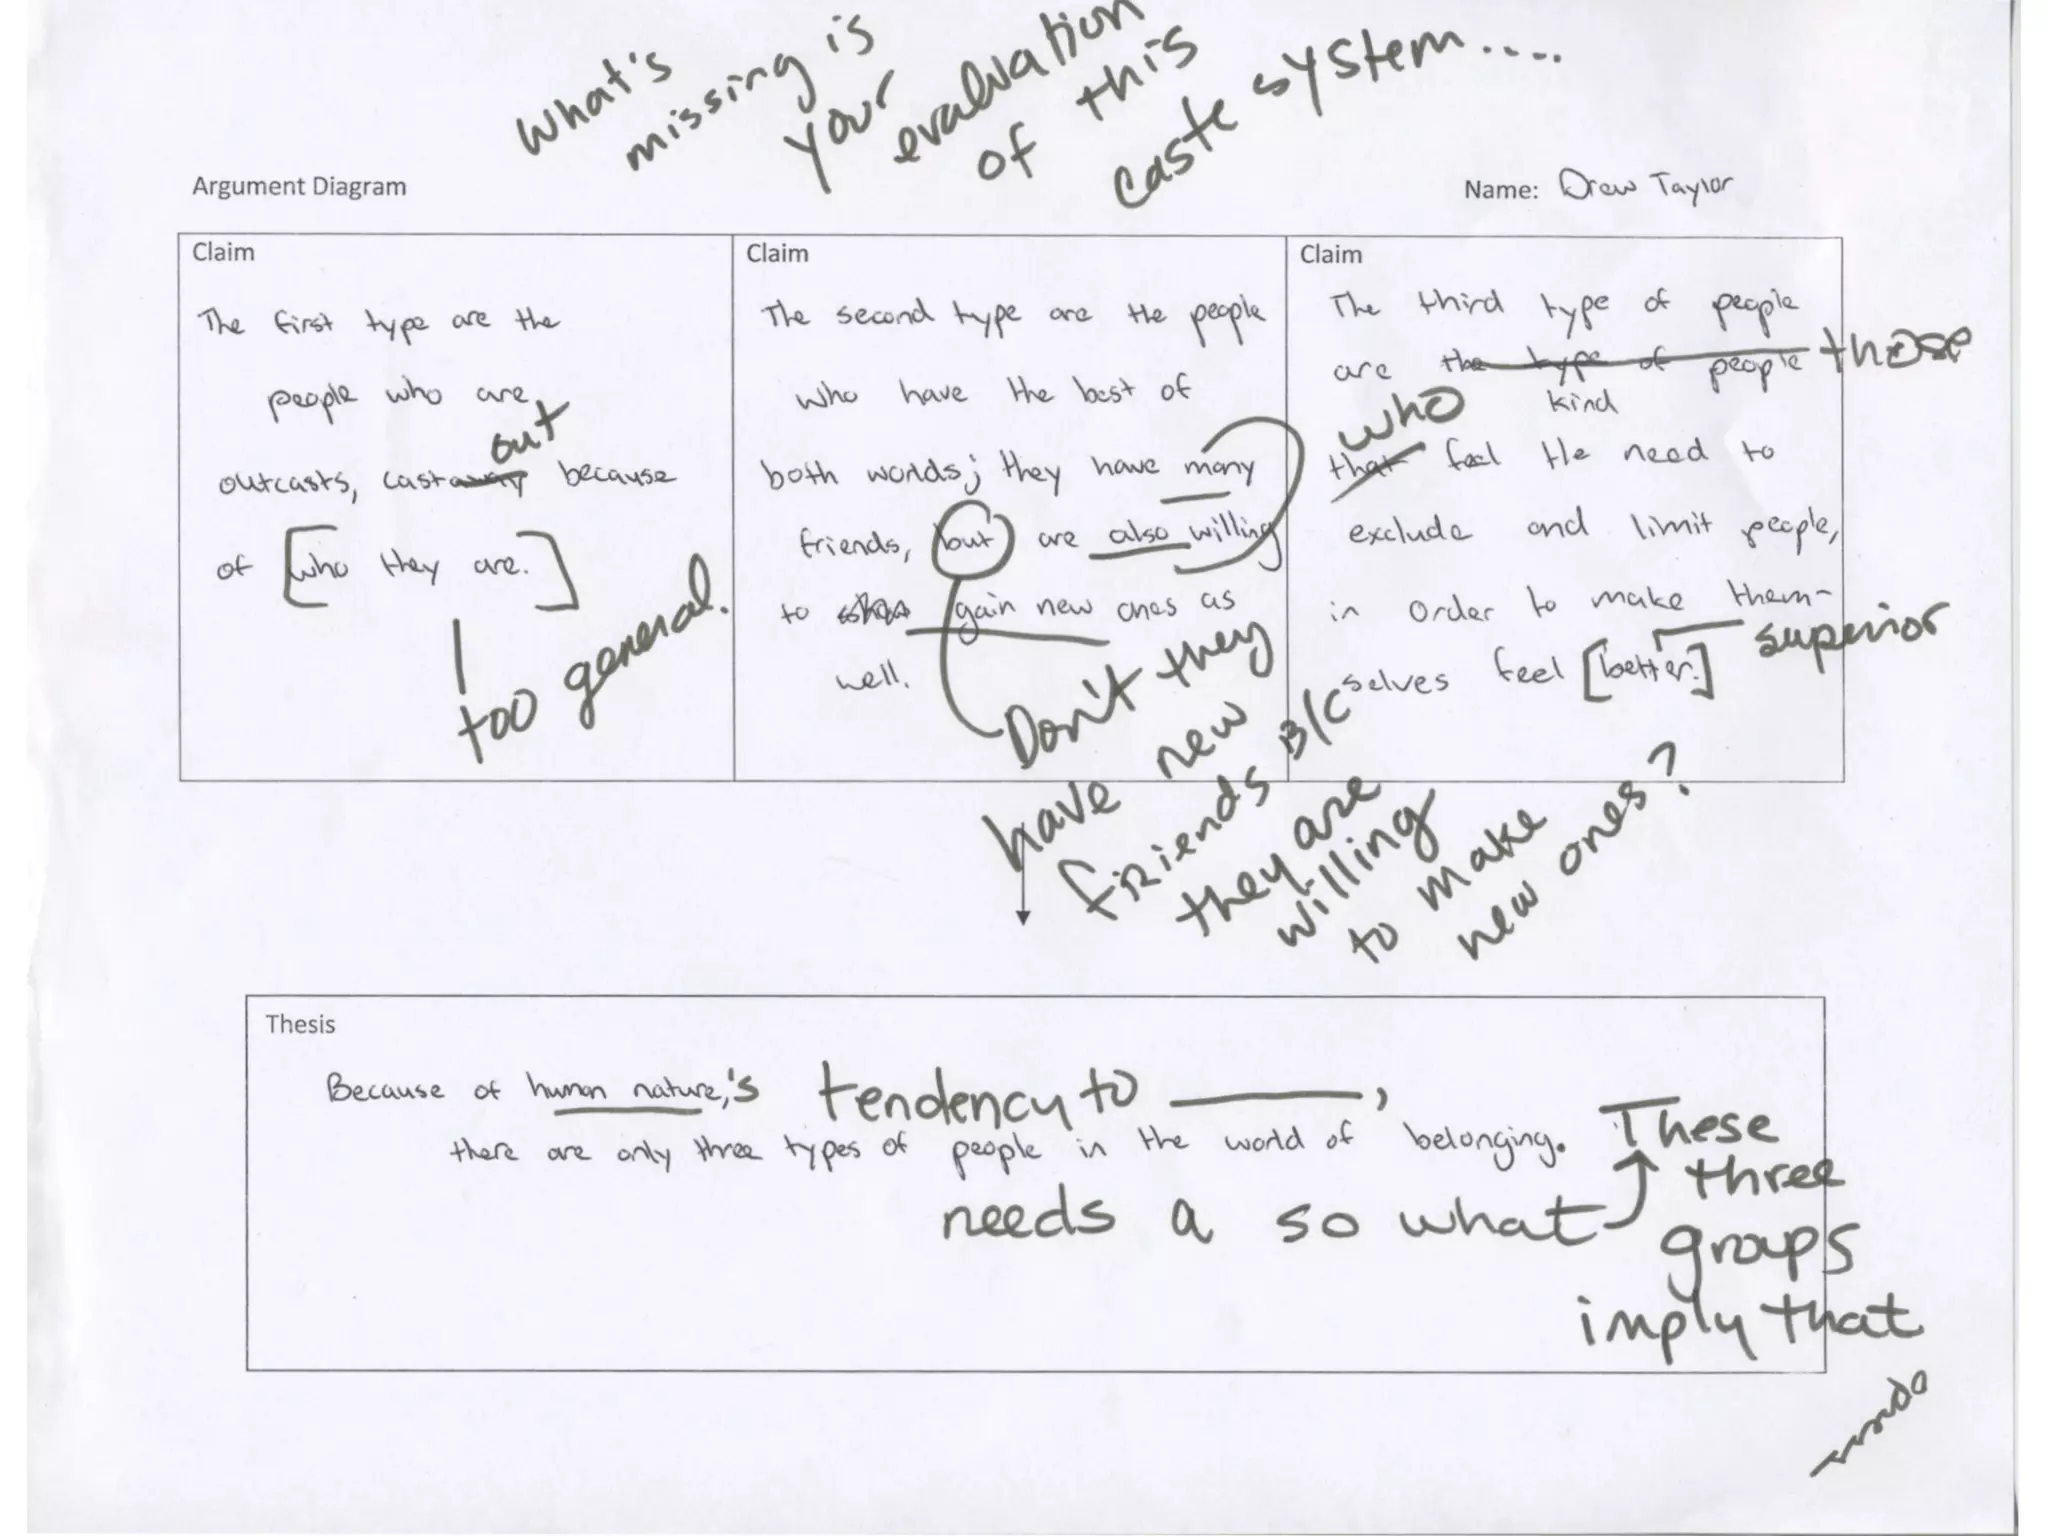 what's
missing is
your
evaluation
of this
caste system....
Argument Diagram
Name: Drew Taylor
Claim
The first type are the
people who are
out
outcasts, castaway because
of [who they are.]
too general.
Claim
The second type are the people
who have the best of
both worlds; they have many
friends, but are also willing
to gain new ones as
well.
Don't they
have new
friends B/C
they are
willing
to make
new ones?
Claim
The third type of people
are the type of people those
who kind
that feel the need to
exclude and limit people,
in order to make them-
superior
selves feel [better.]
Thesis
Because of human nature,'s tendency to ______,
there are only three types of people in the world of belonging.
needs a so what
These
three
groups
imply that